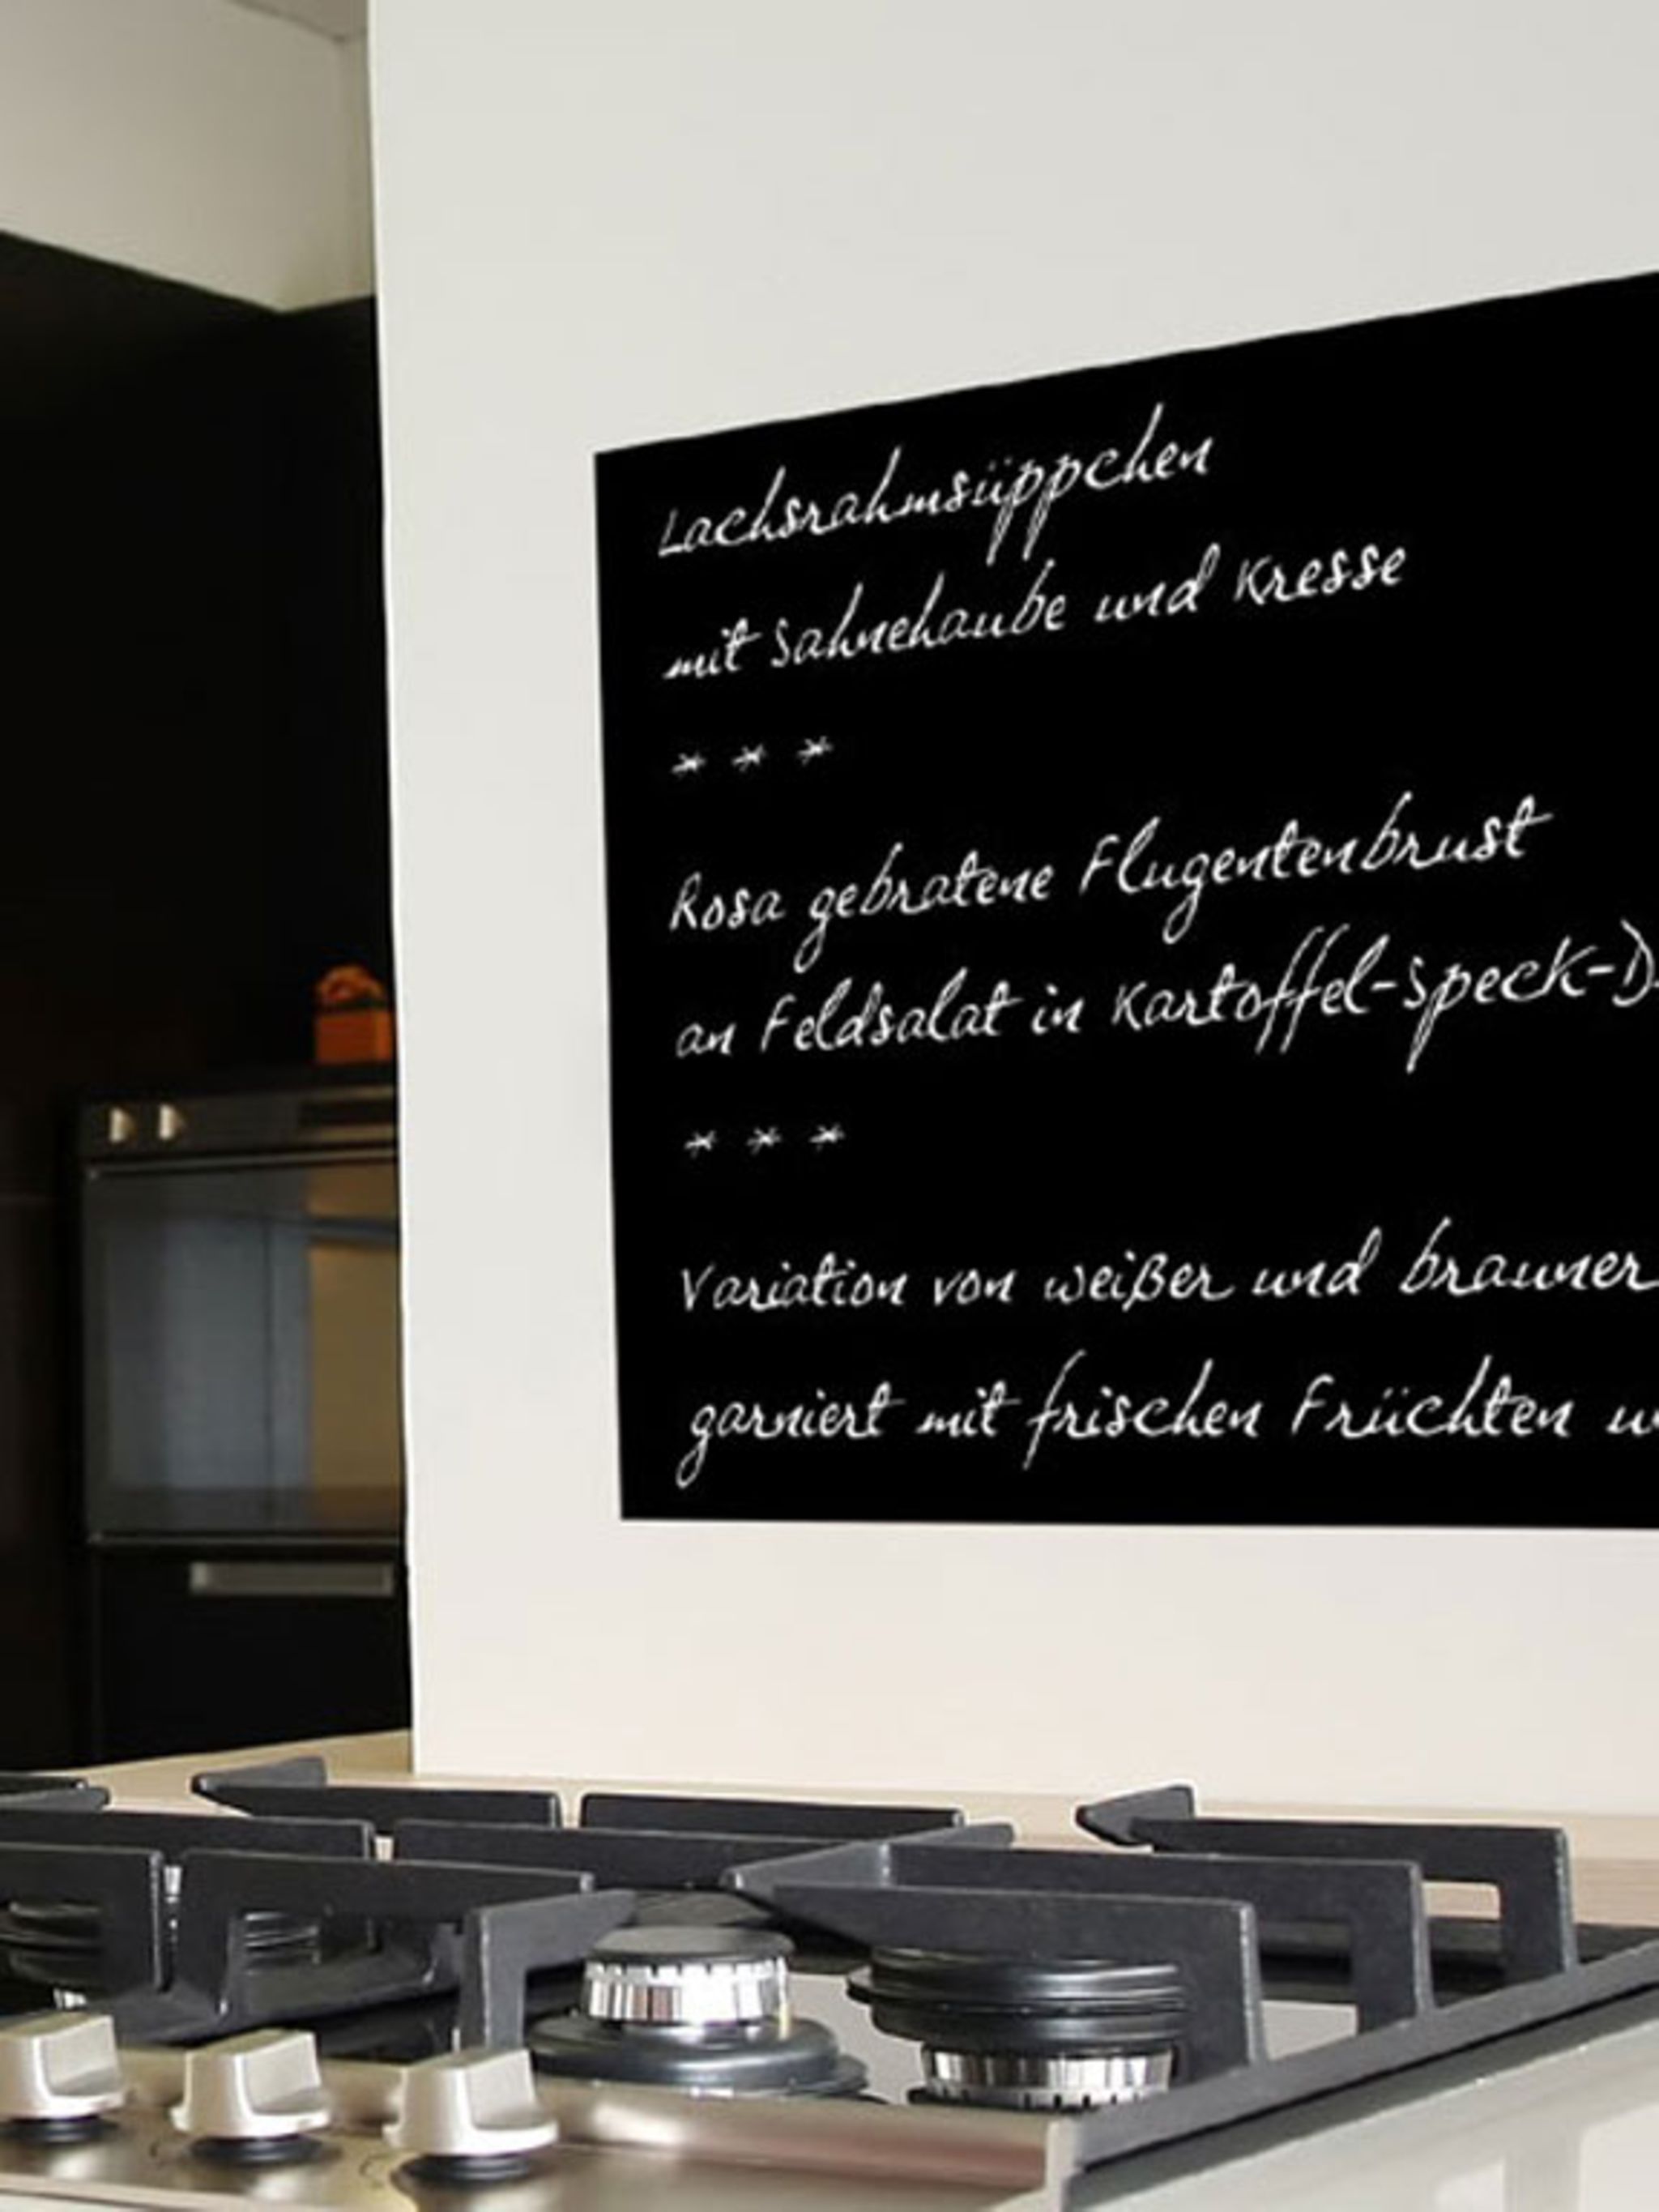 Lachsrahmsüppchen
mit Sahnehaube und Kresse
* * *
Rosa gebratene Flugentenbrust
an Feldsalat in Kartoffel-Speck-D
* * *
Variation von weißer und brauner
garniert mit frischen Früchten